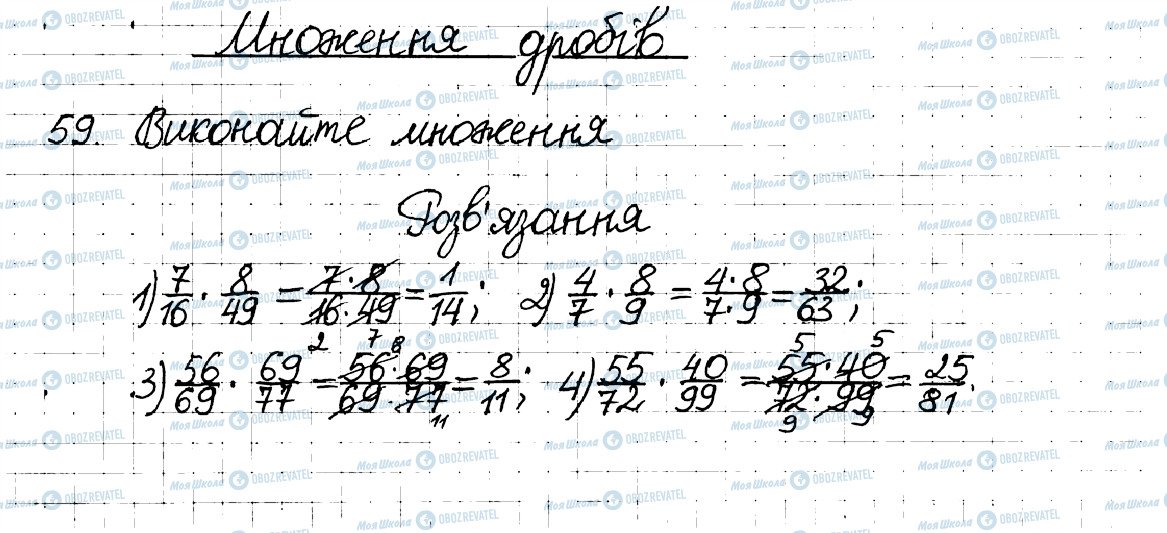 Множення дробів
59. Виконайте множення
Розв'язання
1) 7/16 · 8/49 = 7·8/16·49 = 1/14; 2) 4/7 · 8/9 = 4·8/7·9 = 32/63;
2 7 8 5 5
3) 56/69 · 69/77 = 56·69/69·77 = 8/11; 4) 55/72 · 40/99 = 55·40/72·99 = 25/81.
11 9 9